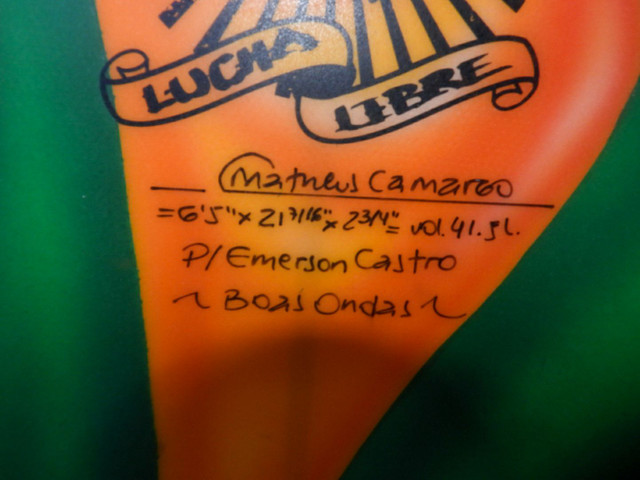 LUCHA
LIBRE
Matheus Camargo
=6'5"x 21 7/16"x 2 3/4"= vol. 41.5L.
P/Emerson Castro
~ Boas Ondas ~